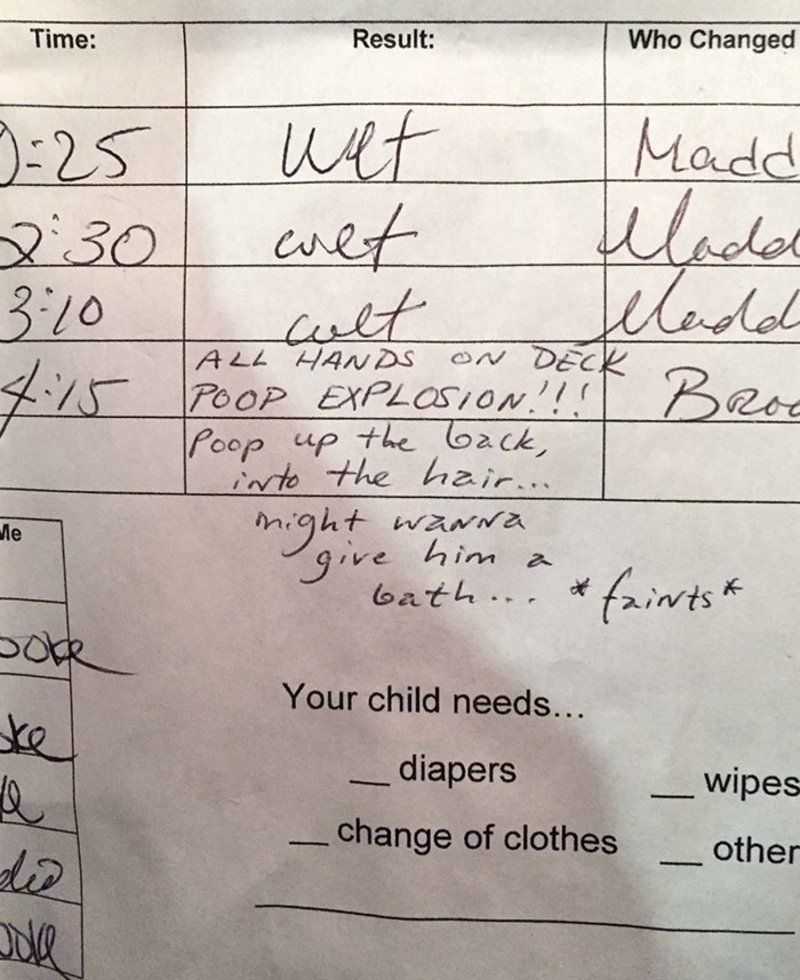 Time: Result: Who Changed
:25 Wet Madd
2:30 wet Madd
3:10 wet Madd
4:15 ALL HANDS ON DECK
POOP EXPLOSION!!! Broo
Poop up the back,
into the hair...
might wanna
give him a
bath... *faints*
Me
ooke
oke
die
ooke
Your child needs...
__ diapers __ wipes
__ change of clothes __ other